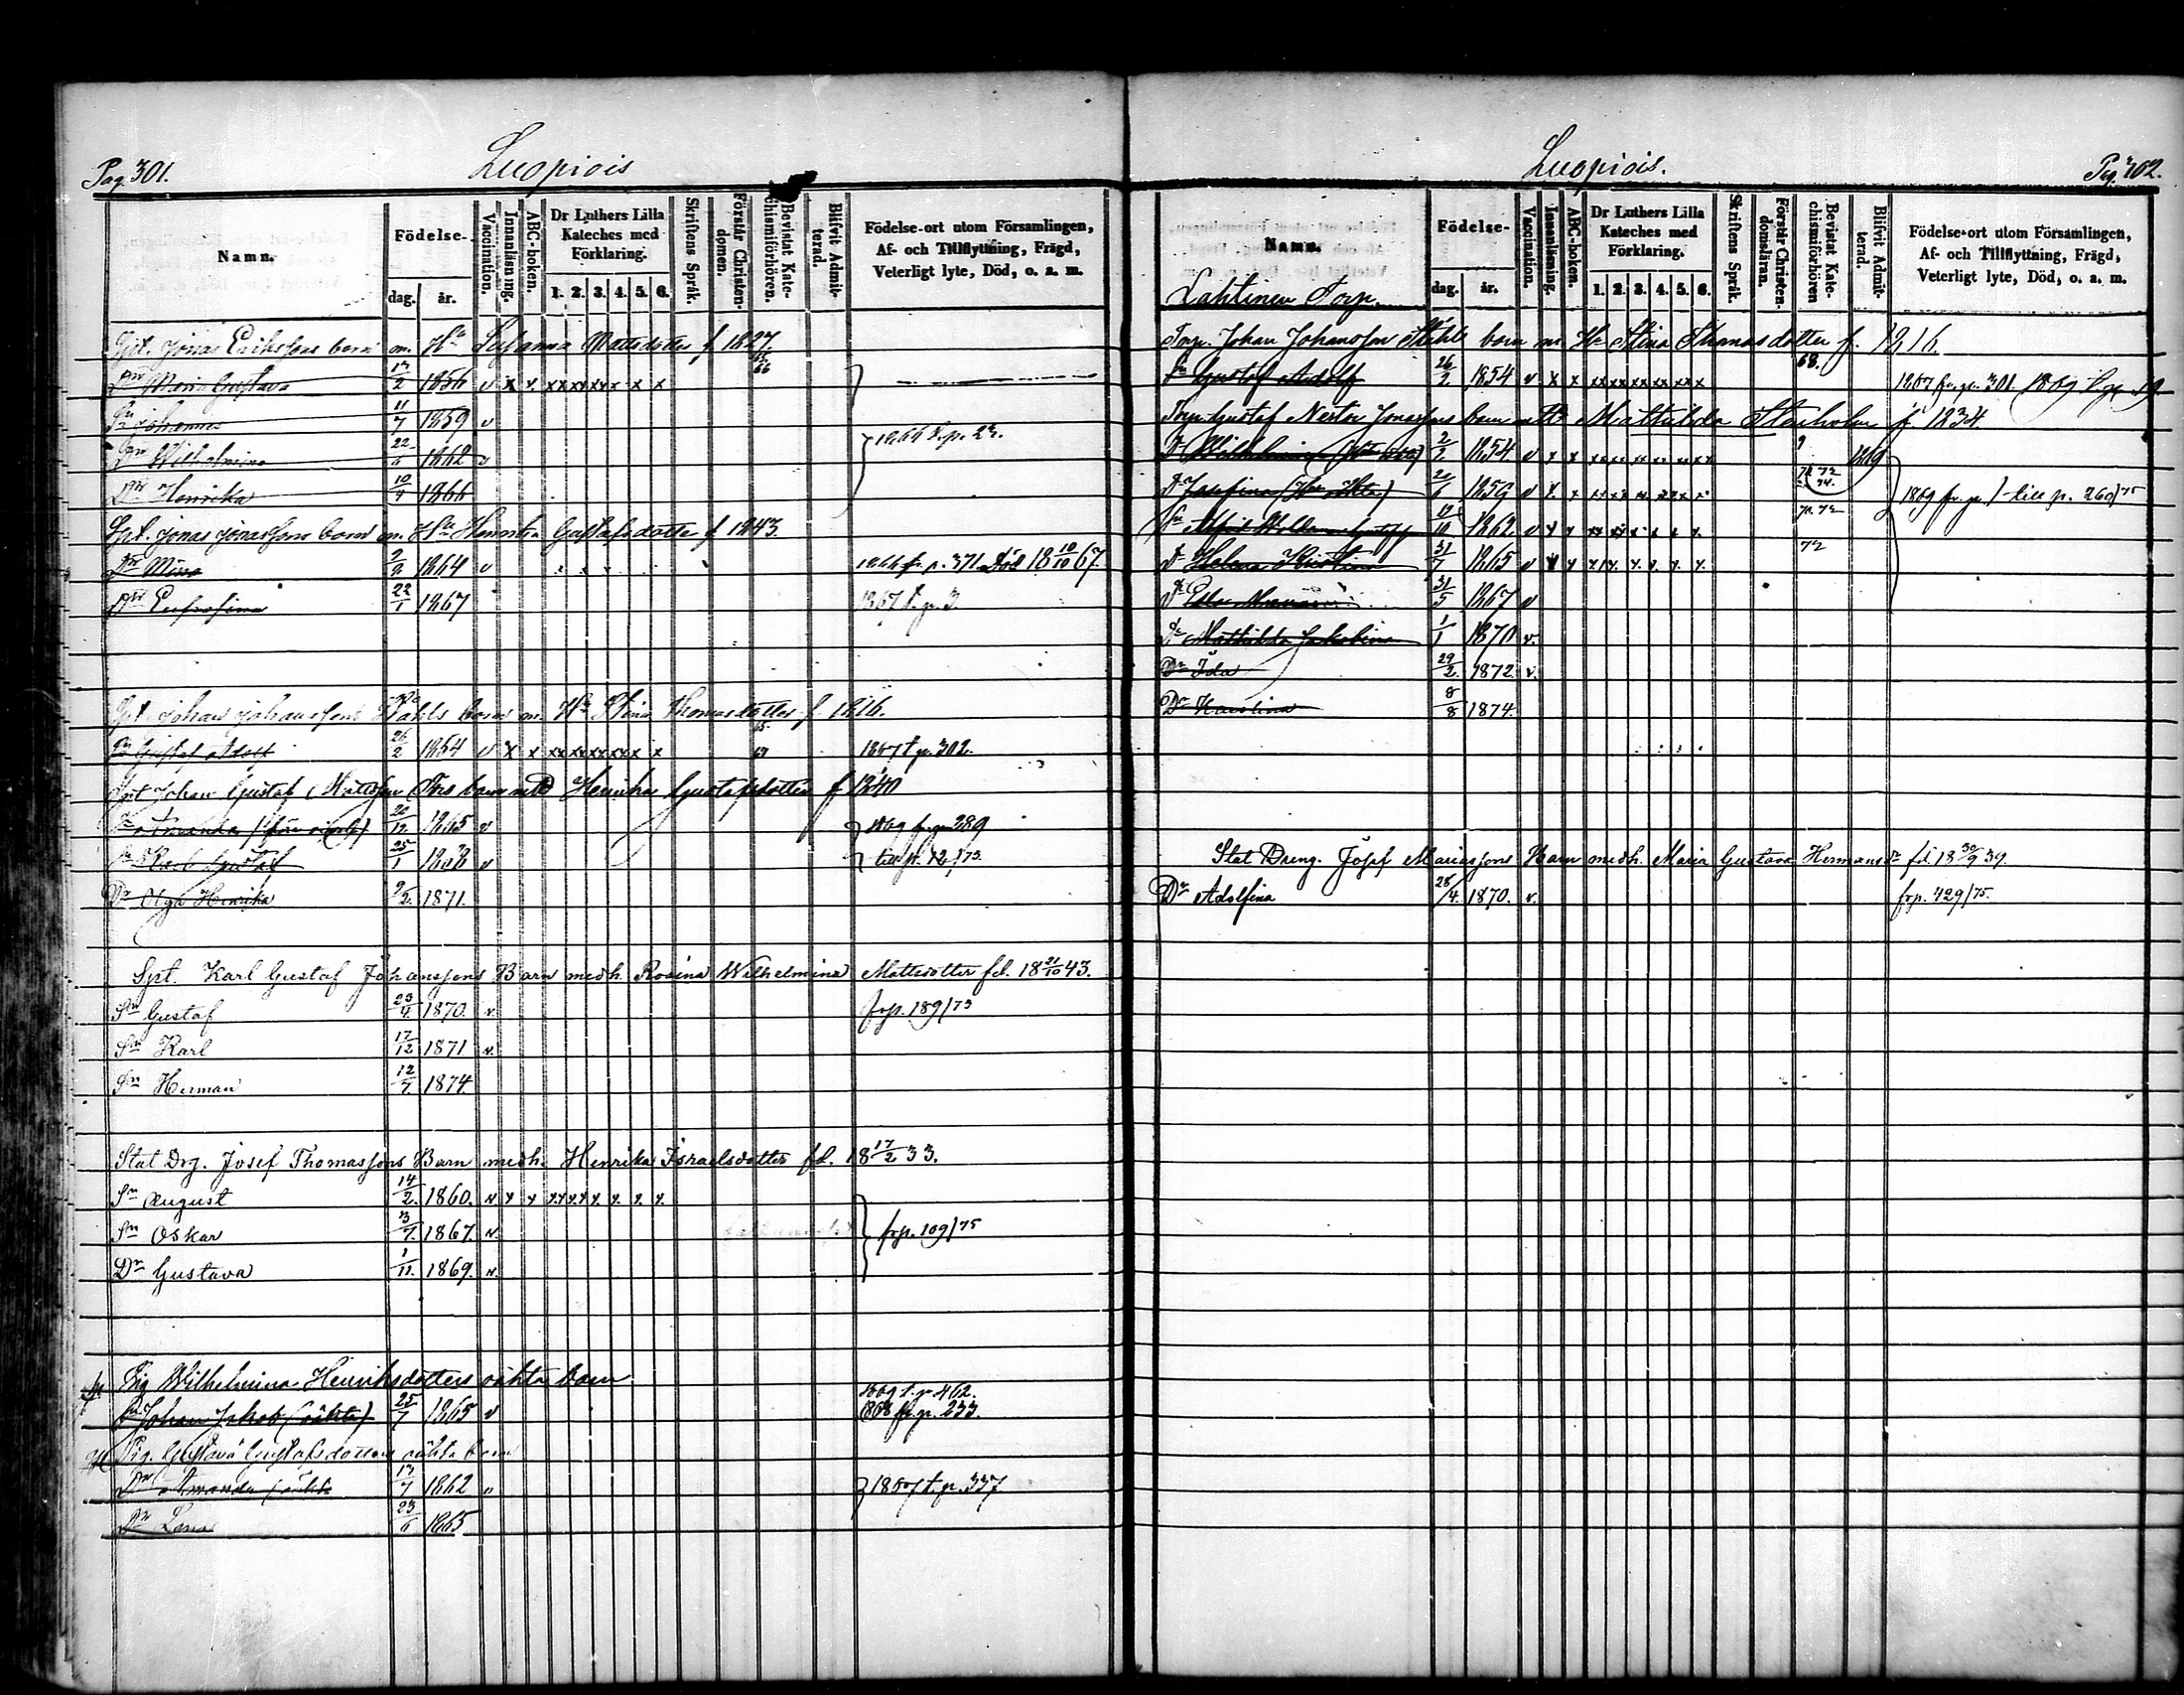 Pag. 301.
Luopiois
Namn.
Födelse-
dag.
år.
Vaccination.
Innanläsning.
ABC-boken.
Dr Luthers Lilla Kateches med Förklaring.
1. 2. 3. 4. 5. 6.
Skriftens Språk.
Förstår Christendomen.
Bevistat Katechismiförhören.
Blifvit Admitterad.
Födelse-ort utom Församlingen, Af- och Tillflyttning, Frägd, Veterligt lyte, Död, o. a. m.
Spt. Jonas Erikssons barn m. Hu Susanna Mattsdotter f 1827.
Dr Maria Gustava 17/2 1856 v x x xx xx xx x x x 66
Sn Johannes 11/7 1859 v
Dr Wilhelmina 22/5 1862 v
Dr Henrika 10/4 1866
Spt. Jonas Jonassons barn m. Hu Henrika Gustafsdotter f 1843.
Dr Mina 2/9 1864 v 1866 fr. p. 371. Död 18 10/10 67.
Dr Eufrosina 22/1 1867 1867 t. p. 3.
Spt. Johan Johanssons Ståhls barn m. Hu Stina Thomasdotter f. 1816.
Sn Gustaf Adolf 26/2 1854 v x x xx xx xx x x x 1867 t. p. 302.
Spt Johan Gustaf Mattsson barn med Henrika Gustafsdotter f 1840
Dr Amanda 20/12 1865 v 1869 fr. p. 289
Sn Karl Gustaf 25/1 1868 v till p. 12/73.
Dr Olga Henrika 9/2. 1871.
Spt. Karl Gustaf Johanssons Barn medh. Rosina Wilhelmina Mattsdotter fd. 18 21/10 43.
Sn Gustaf 23/4 1870. v. frp. 189/73
Sn Karl 17/12 1871 v.
Sn Herman 12/7. 1874.
Stat Drg. Josef Thomassons Barn medh. Henrika Israelsdotter fd. 18 17/2 33.
Sn August 14/2. 1860. v x x x x x x x x x x.
Sn Oskar 3/7. 1867. v. frp. 109/75
Dr Gustava 1/11. 1869. v.
Pig Wilhelmina Henriksdotters oäkta barn
1869 t. p 462.
Sn Johan Jakob (oäkta) 25/7 1865 v 1868 fr. p. 233.
Pig. Gustava Gustafsdotters oäkta barn
Dr Amanda (oäkta 17/7 1862 v 1867 t. p. 337
Dr Lena 23/6 1865
Pag. 302.
Luopiois.
Namn.
Lahtinen Torp.
Födelse-
dag.
år.
Vaccination.
Innanläsning.
ABC-boken.
Dr Luthers Lilla Kateches med Förklaring.
1. 2. 3. 4. 5. 6.
Skriftens Språk.
Förstår Christendomsläran.
Bevistat Katechismiförhören
Blifvit Admitterad.
Födelse-ort utom Församlingen, Af- och Tillflyttning, Frägd, Veterligt lyte, Död, o. a. m.
Torp. Johan Johansson Ståhls barn m. Hu Stina Thomasdotter f. 1816.
Sn Gustaf Adolf 26/2. 1854 v x x xx xx xx xx x x x 68. 1867 fr. p. 301.
Torp. Gustaf Nestor Jonassons barn m Hu Mathilda Stenholm f 1834.
Dr Wilhelmina 2/2 1854 v x x
Dr Josefina 20/6 1859 v x. x 1869 fr. p. / till p. 260/75
Sn 12/10 1862 v x x 71. 72
Dr Helena Kristina 31/7 1865 v x x 72
Dr 31/5 1867 v
Dr Mathilda Jakobina 1/1 1870 v.
Dr Ida 29/2. 1872 v.
Dr Karolina 8/8 1874.
Stat Dreng. Josef Mariassons Barn medh. Maria Gustava Hermansdr fd. 18 30/9 39.
Dr Adolfina 28/4. 1870. v. frp. 429/75.